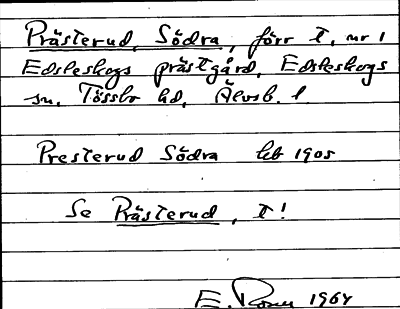 Prästerud, Södra, förr t. nr 1
Edsleskogs prästgård, Edsleskogs
sn, Tössbo hd, Älvsb. l
Presterud Södra Jeb 1905
Se Prästerud, t!
E. Rosen 1964